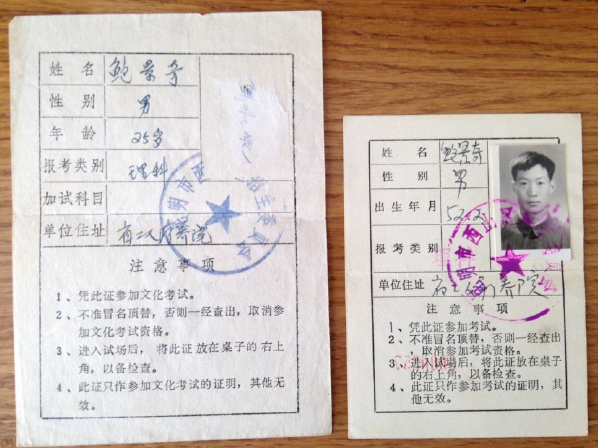 姓名 鲍景奇
性别 男
年龄 25岁
报考类别 理科
加试科目
单位住址 省工人疗养院
注意事项
1、凭此证参加文化考试。
2、不准冒名顶替，否则一经查出，取消参
加文化考试资格。
3、进入试场后，将此证放在桌子的右上
角，以备检查。
4、此证只作参加文化考试的证明，其他无
效。
明市西
招生委员会
姓名 鲍景奇
性别 男
出生年月 52.2
报考类别
单位住址 省工人疗养院
注意事项
1、凭此证参加考试。
2、不准冒名顶替，否则一经查出
取消参加考试资格。
3、进入试场后，将此证放在桌子
的右上角，以备检查。
4、此证只作参加考试的证明，其
他无效。
明市西